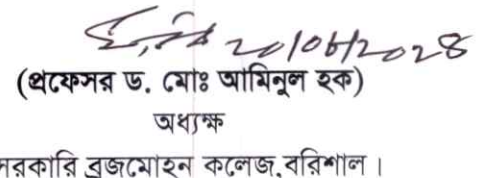 ২০/০৬/২০২৪
(প্রফেসর ড. মোঃ আমিনুল হক)
অধ্যক্ষ
সরকারি ব্রজমোহন কলেজ, বরিশাল।